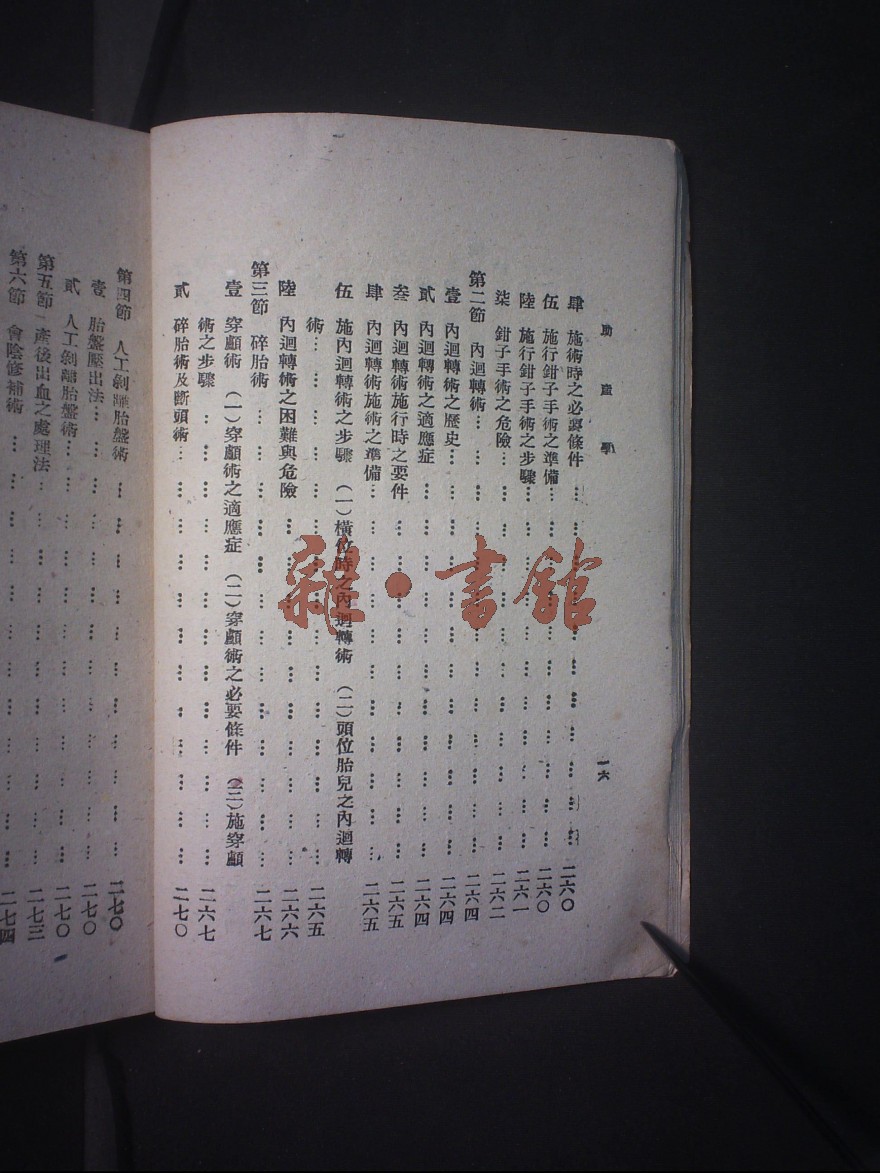 助產學
一六
肆 施術時之必要條件………二六〇
伍 施行鉗子手術之準備………二六〇
陸 施行鉗子手術之步驟………二六一
柒 鉗子手術之危險………二六二
第二節 內迴轉術………二六四
壹 內迴轉術之歷史………二六四
貳 內迴轉術之適應症………二六四
叁 內迴轉術施行時之要件………二六五
肆 內迴轉術施術之準備………二六五
伍 施內迴轉術之步驟 (一)橫位時之內迴轉術 (二)頭位胎兒之內迴轉
術………二六五
陸 內迴轉術之困難與危險………二六六
第三節 碎胎術………二六七
壹 穿顱術 (一)穿顱術之適應症 (二)穿顱術之必要條件 (三)施穿顱
術之步驟………二六七
貳 碎胎術及斷頭術………二七〇
第四節 人工剝離胎盤術………二七〇
壹 胎盤壓出法………二七〇
貳 人工剝離胎盤術………二七〇
第五節 產後出血之處理法………二七三
第六節 會陰修補術………二七四
雜·書館